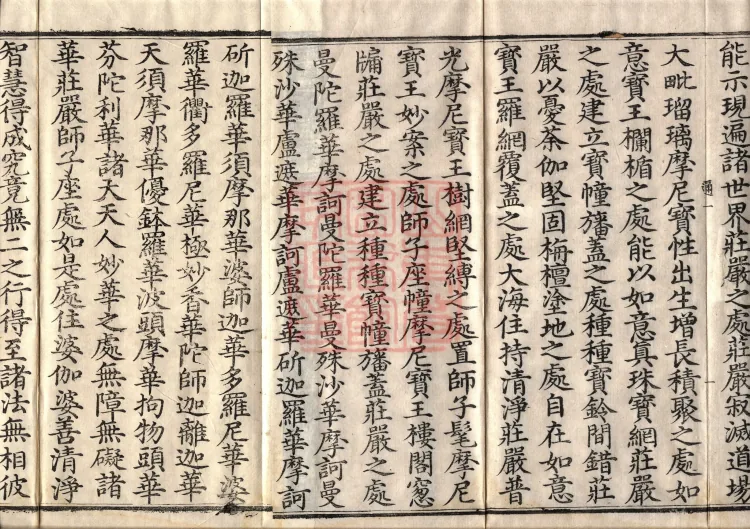 能示現遍諸世界莊嚴之處莊嚴寂滅道場
大毗瑠璃摩尼寶性出生增長積聚之處如
意寶王欄楯之處能以如意真珠寶網莊嚴
之處建立寶幢旛蓋之處種種寶鈴間錯莊
嚴以憂荼伽堅固栴檀塗地之處自在如意
寶王羅網覆蓋之處大海住持清淨莊嚴普
光摩尼寶王樹網堅縛之處置師子髦摩尼
寶王妙案之處師子座幢摩尼寶王樓閣窻
牖莊嚴之處建立種種寶幢旛蓋莊嚴之處
曼陀羅華摩訶曼陀羅華曼殊沙華摩訶曼
殊沙華盧遮華摩訶盧遮華斫迦羅華摩訶
斫迦羅華須摩那華婆師迦華多羅尼華婆
羅華衢多羅尼華極妙香華陀師迦離迦華
天須摩那華優鉢羅華波頭摩華拘物頭華
芬陀利華諸天天人妙華之處無障無礙諸
華莊嚴師子座處如是處住婆伽婆善清淨
智慧得成究竟無二之行得至諸法無相彼